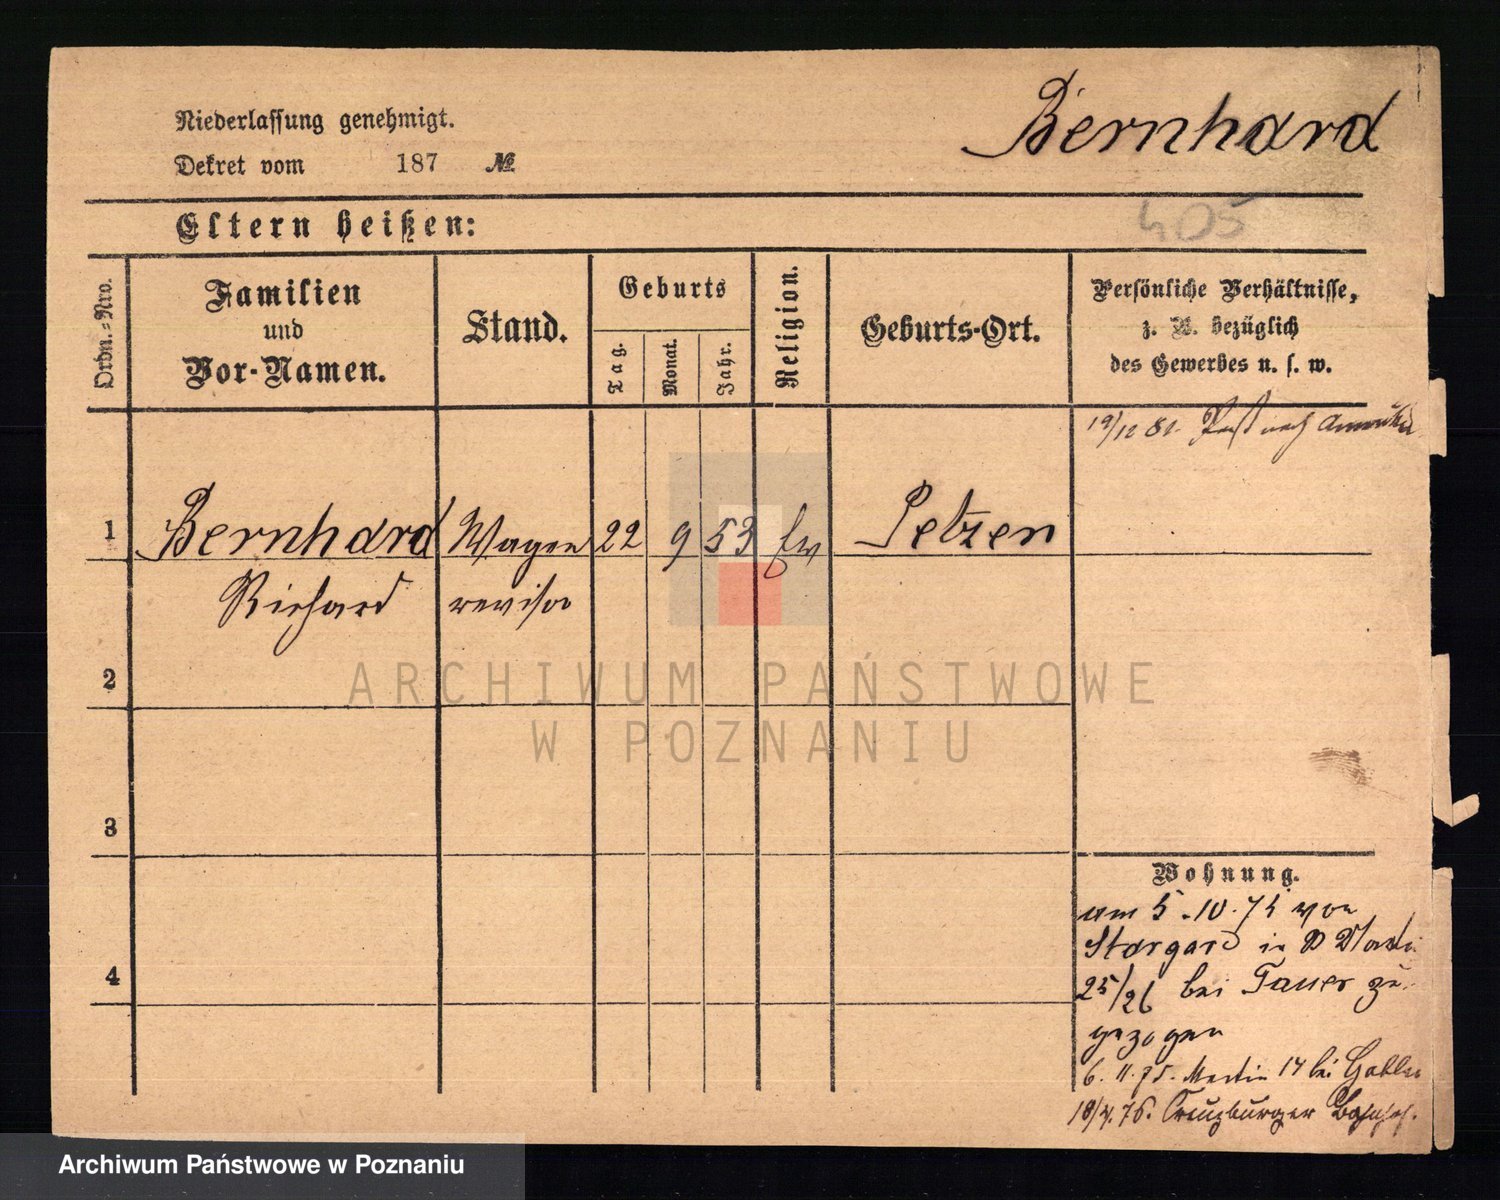 Bernhard
Niederlassung genehmigt.
Dekret vom 187 №
405
Eltern heißen:
Ordn.-Nro.
Familien und Vor-Namen.
Stand.
Geburts
Tag.
Monat.
Jahr.
Religion.
Geburts-Ort.
Persönliche Verhältnisse,
z. B. bezüglich
des Gewerbes u. s. w.
19/12 81. nach Amerika
1 Bernhard Wagen 22 9 53 Ev Petzen
Richard revisor
2
3
4
Wohnung.
am 5.10.75 von
Stargard in St Martin
25/26 bei Tauer zu
gezogen
6.11.75. Martin 14 bei
18/4.76. Kreuzburger Bahnhof.
ARCHIWUM PAŃSTWOWE
W POZNANIU
Archiwum Państwowe w Poznaniu